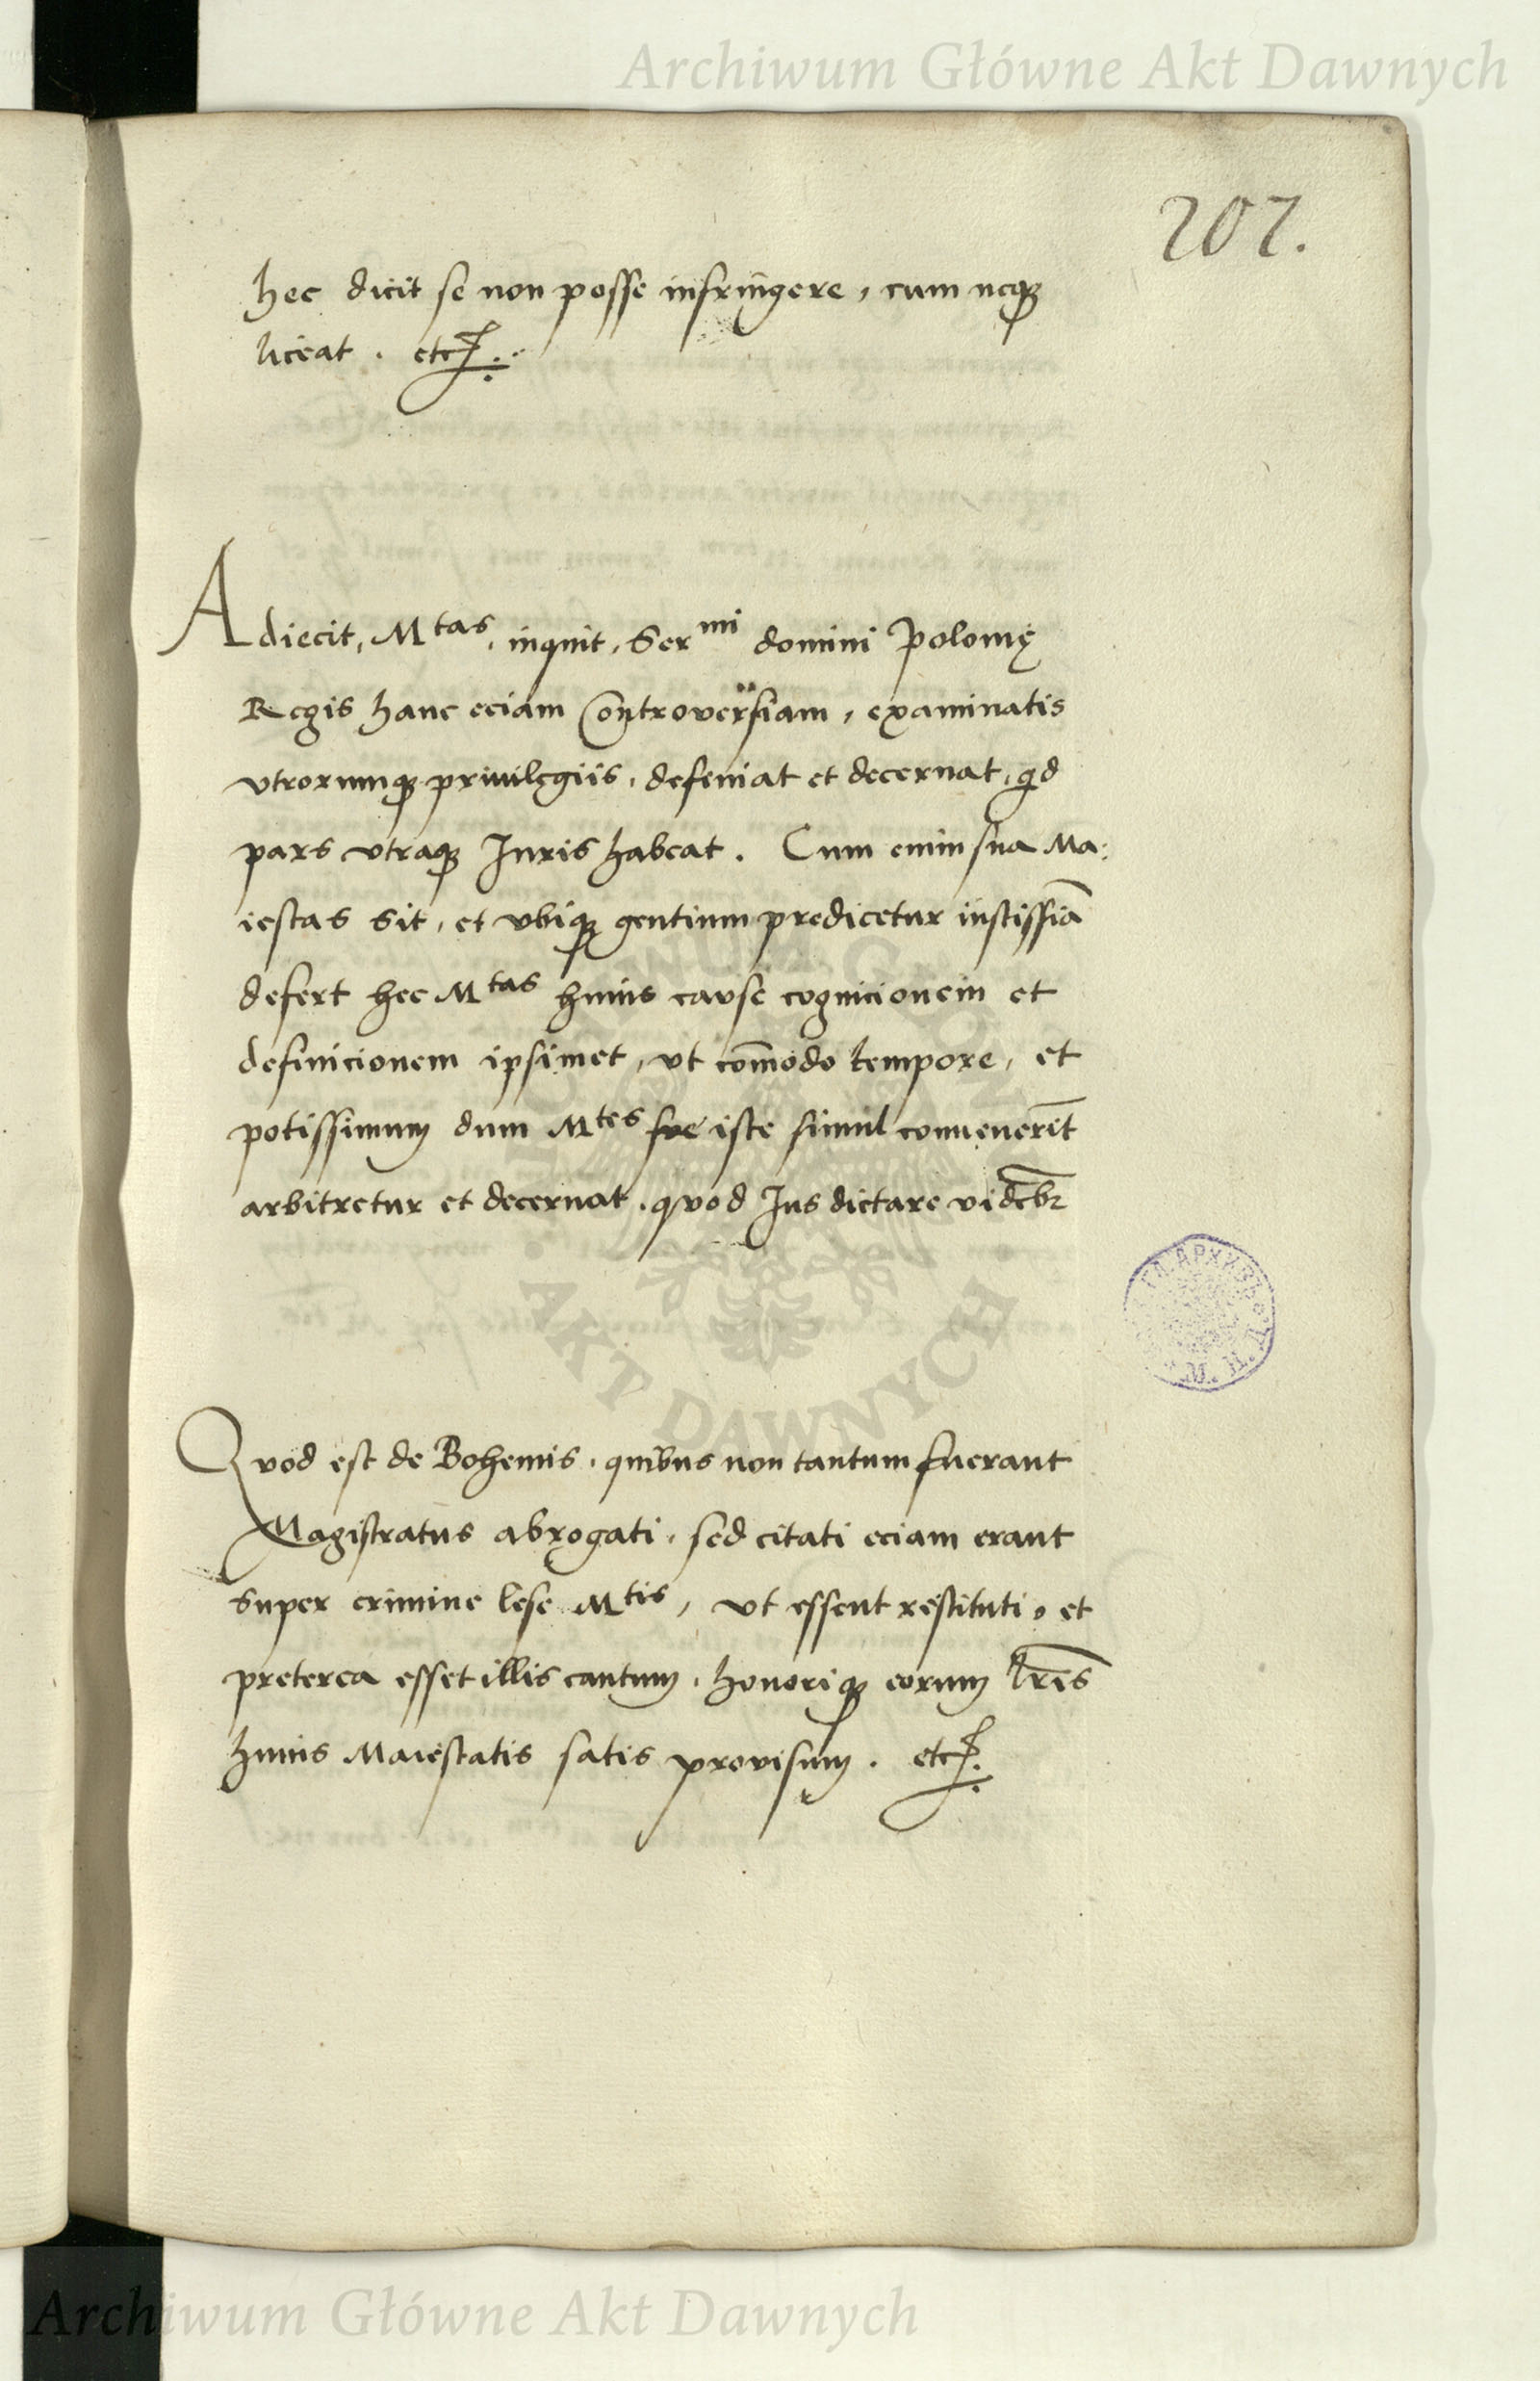 Archiwum Główne Akt Dawnych
202.
hec dicit se non posse infringere, cum neq;
liceat. etc.
Adiecit, Mtas, inquit, Sermi domini Polonię
Regis hanc eciam Controversiam, examinatis
vtrorumq; priuilęgiis, defeniat et decernat, qd
pars vtraq; Iuris habeat. Cum enim sua Ma:
iestas sit, et vbiq; gentium predicetur iustissīa
defert hec Mtas huius causę cognicionem et
definicionem ipsimet, vt com̄odo tempore, et
potissimum dum Mtes sue iste simul conuenerīt
arbitretur et decernat, quod Ius dictare videbr
Quod est de Bohemis, quibus non tantum fuerant
Magistratus abrogati, sed citati eciam erant
super crimine lese Mtis, vt essent restituti, et
preterea esset illis cautum, honoriq; eorum lr̄is
huius Maiestatis satis provisum. etc.
AKT DAWNYCH
Archiwum Główne Akt Dawnych